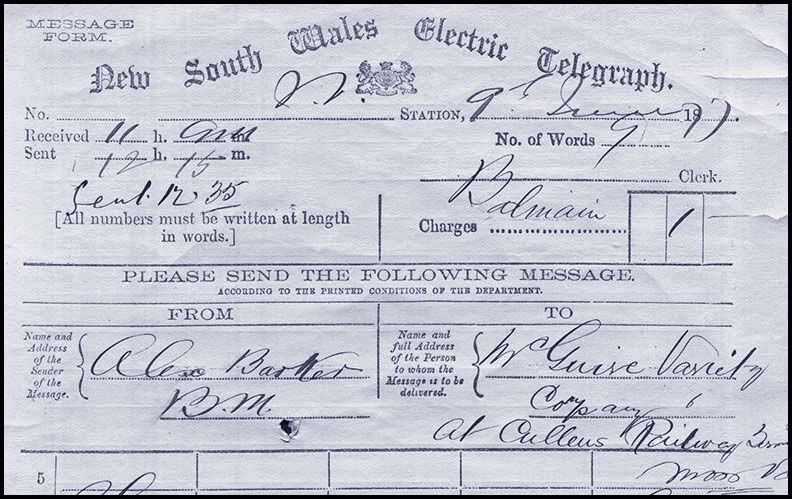 MESSAGE
FORM.
New South Wales Electric Telegraph.
No. STATION, 9 187.
Received 11 h. m. No. of Words 9
Sent 12 h. 15 m.
Clerk.
Sent 12 35
[All numbers must be written at length
in words.]
Balmain
Charges 1
PLEASE SEND THE FOLLOWING MESSAGE.
ACCORDING TO THE PRINTED CONDITIONS OF THE DEPARTMENT.
FROM TO
Name and
Address
of the
Sender
of the
Message.
Alex Barker
B.M.
Name and
full Address
of the Person
to whom the
Message is to be
delivered.
McGuire Variety
Company
at Cullens Railway
5